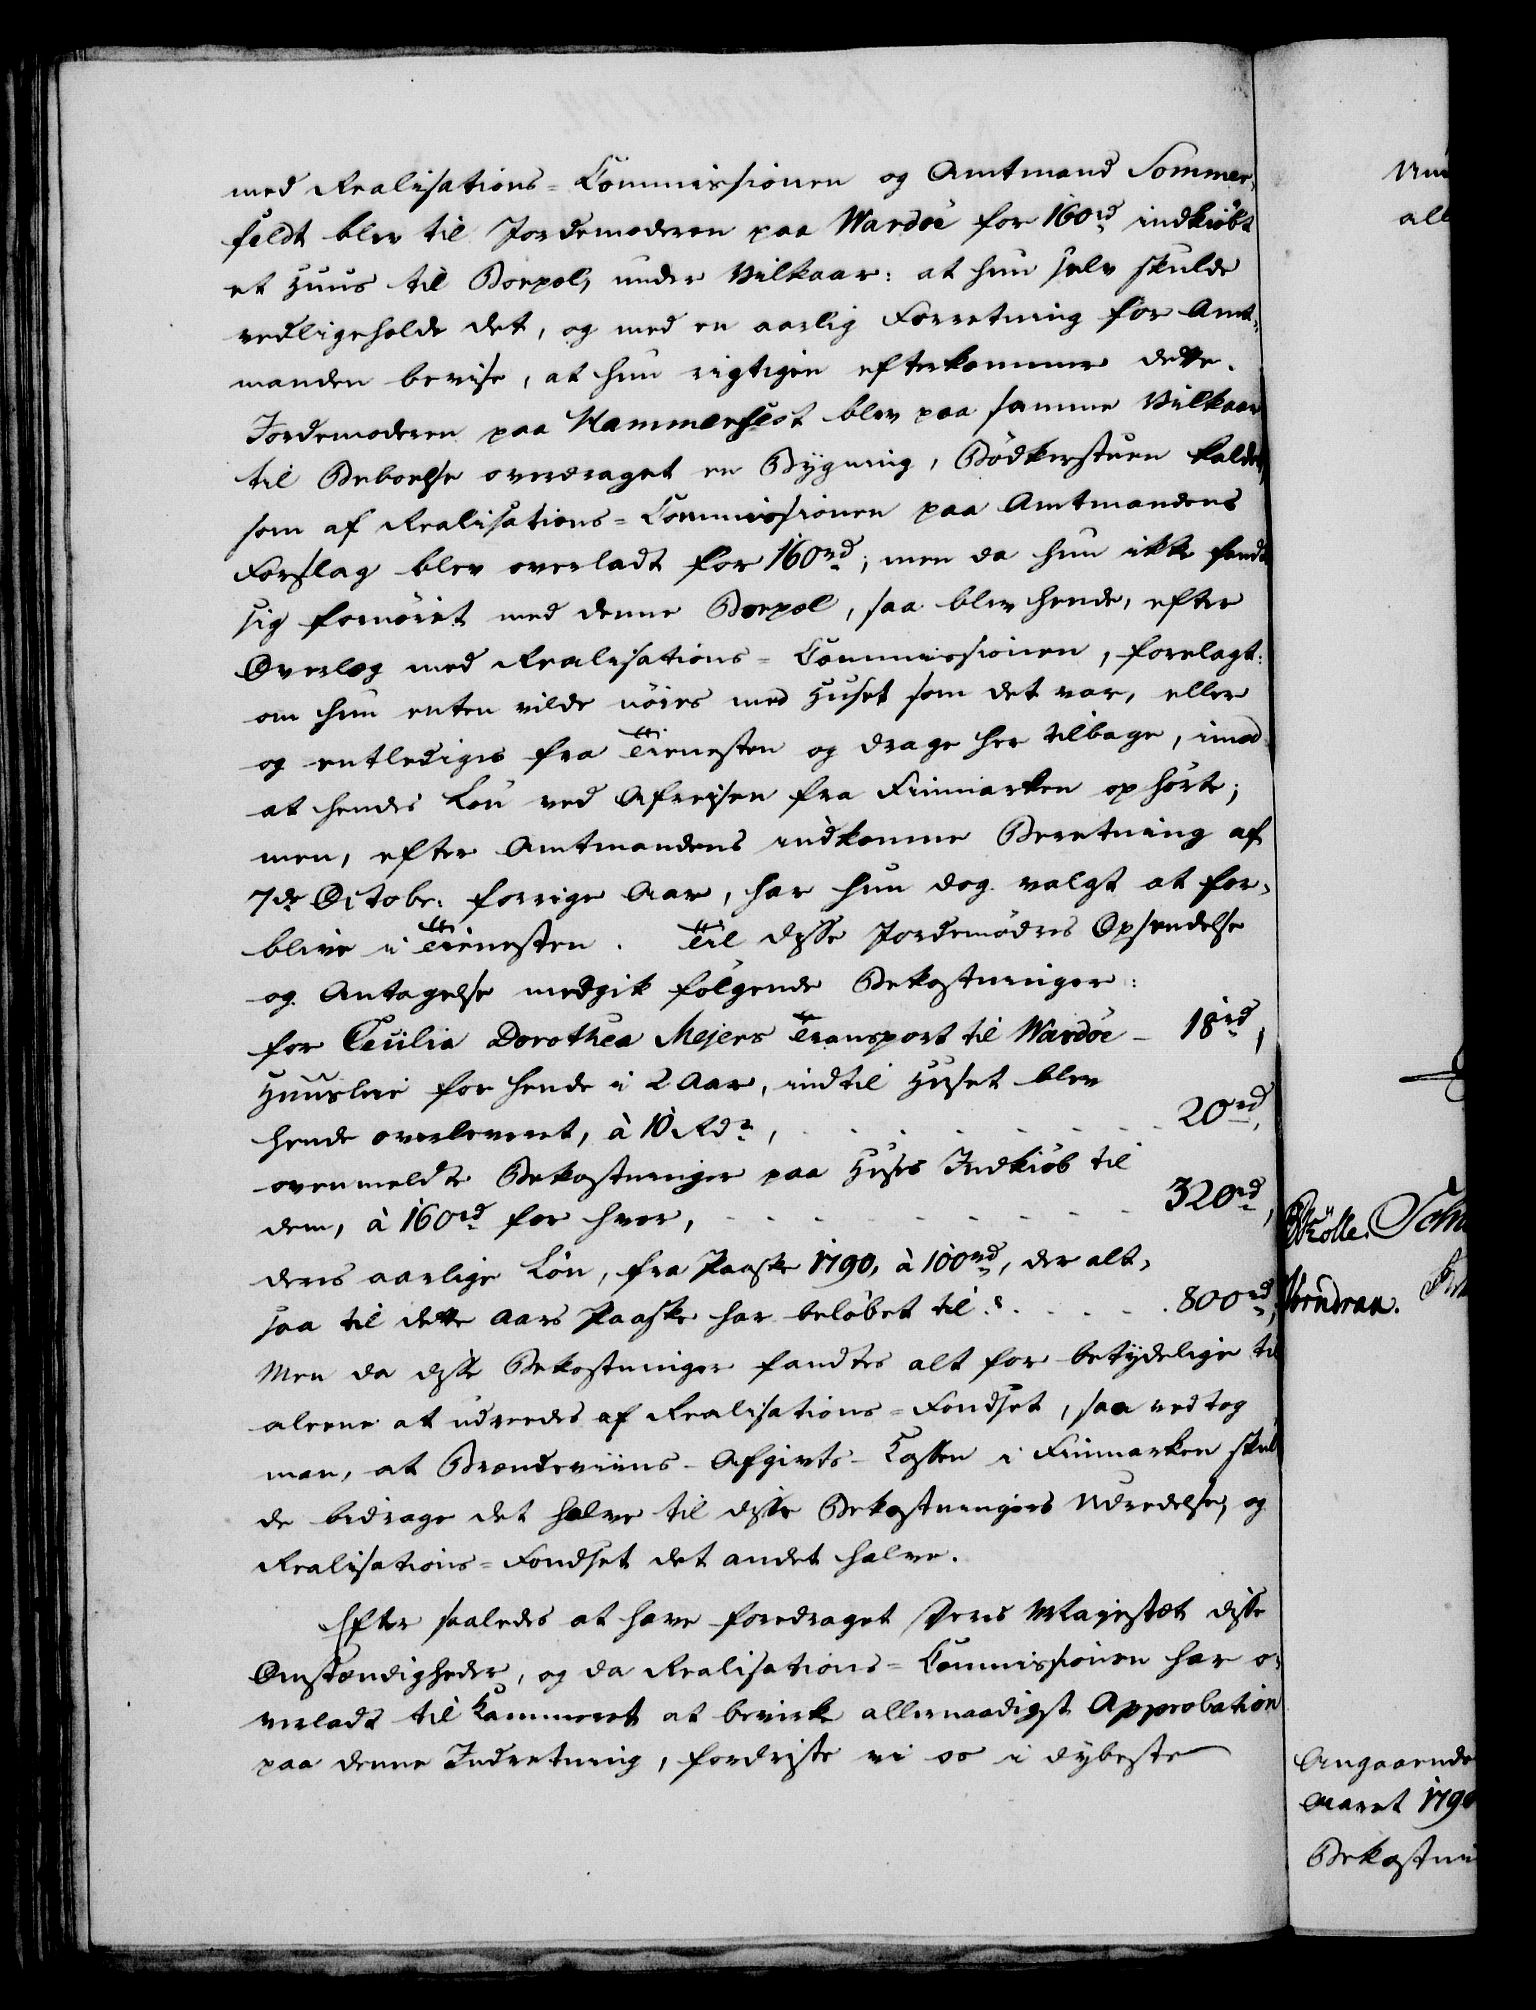 med Realisations-Commissionen og Amtmand Sommer-
feldt blev til Jordemoderen paa Wardøe for 160rd indkiøbt
et Huus til Boepel, under Vilkaar: at hun selv skulde
vedligeholde det, og med en aarlig Forretning for Amt-
manden bevise, at hun rigtigen efterkommer dette.
Jordemoderen paa Hammerfest blev paa samme Vilkaar
til Beboelse overdraget en Bygning, Bødkerstuen kaldet,
som af Realisations-Commissionen paa Amtmandens
Forslag blev overladt for 160rd; men da hun ikke fandt
sig fornøiet med denne Boepel, saa blev hende, efter
Overlæg med Realisations-Commissionen, forelagt:
om hun enten vilde nøies med Huset som det var, eller
og entlediges fra Tienesten og drage her tilbage, imod
at hendes Løn ved Afreisen fra Finmarken ophørte;
men, efter Amtmandens indkomne Beretning af
7de Octobr: forrige Aar, har hun dog valgt at for-
blive i Tienesten. Til disse Jordemødres Opsendelse
og Antagelse medgik følgende Bekostninger:
for Cecilia Dorothea Mejers Transport til Wardøe - 18rd,
Huusleie for hende i 2 Aar, indtil Huset blev
hende overleveret, à 10 Rdr, . . . . . . . 20rd,
ovenmeldte Bekostninger paa Huses Indkiøb til
dem, à 160rd for hver, . . . . . . . . . 320rd,
deres aarlige Løn, fra Paaske 1790, à 100rd, der alt-
saa til dette Aars Paaske har beløbet til . . . . . 800rd,
Men da disse Bekostninger fandtes alt for betydelige til
aleene at udreedes af Realisations-Fondset, saa vedtog
man, at Brændeviins-Afgivts-Cassen i Finmarken skul-
de bidrage det halve til disse Bekostningers Udredelse, og
Realisations-Fondset det andet halve.
Efter saaledes at have foredraget Deres Majestæt disse
Omstændigheder, og da Realisations-Commissionen har o-
verladt til Kammeret at bevirke allernaadigst Approbation
paa denne Indretning, fordriste vi os i dybeste
all
Wendraa.
Angaaende
Aaret 179
Bekostni